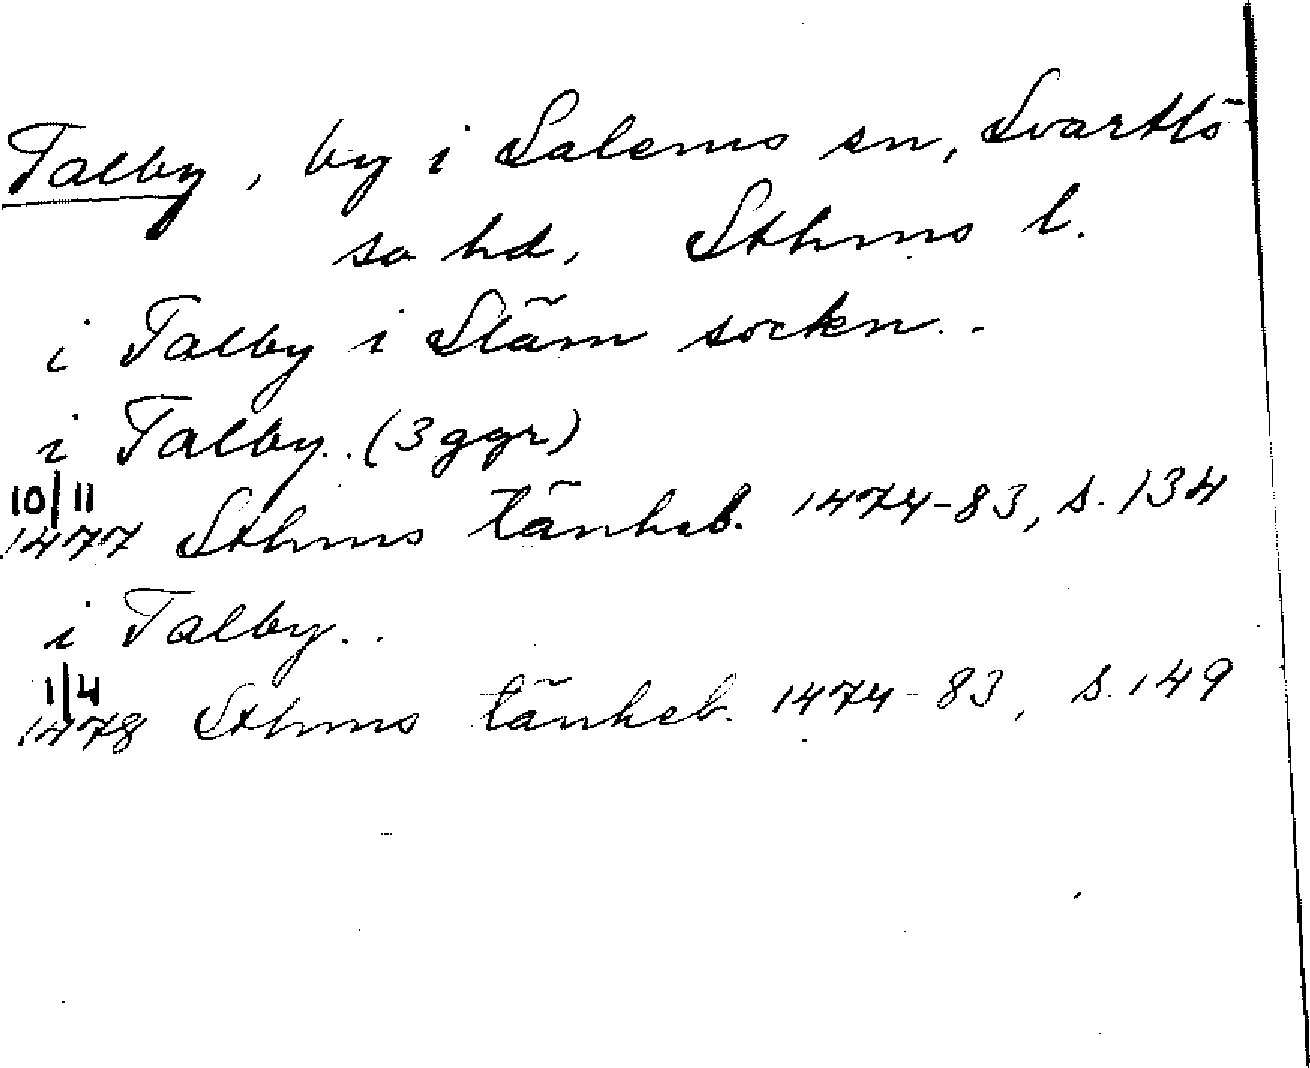 Talby, by i Salems sn, Svartlö-
sa hd, Sthms l.
i Talby i Släm sockn..
i Talby.. (3 ggr)
10/11
1477 Sthms tänkeb. 1474-83, s. 134
i Talby..
1/4
1478 Sthms tänkeb. 1474-83, s. 149